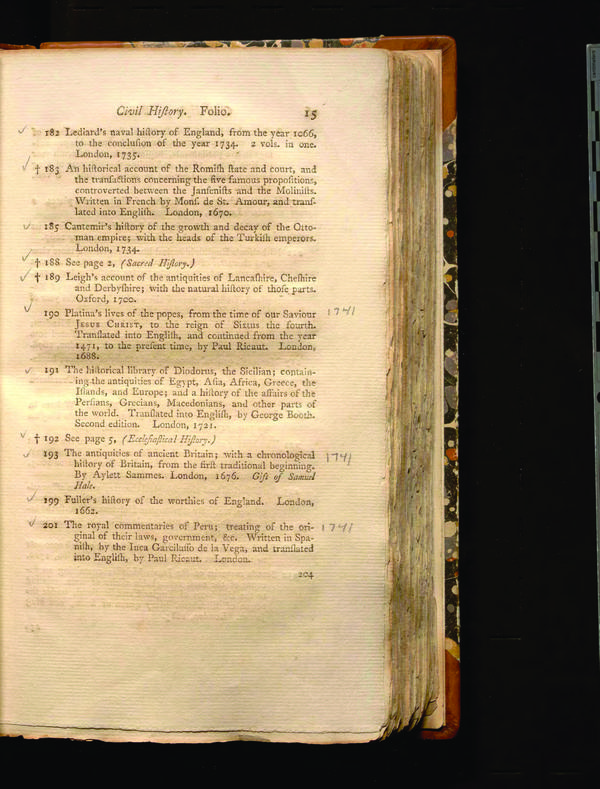 Civil Hiſtory. Folio. 15
182 Lediard's naval hiſtory of England, from the year 1066,
to the concluſion of the year 1734. 2 vols. in one.
London, 1735.
† 183 An hiſtorical account of the Romiſh ſtate and court, and
the tranſactions concerning the five famous propoſitions,
controverted between the Janſeniſts and the Moliniſts.
Written in French by Monſ. de St. Amour, and tranſ-
lated into Engliſh. London, 1670.
185 Cantemir's hiſtory of the growth and decay of the Otto-
man empire; with the heads of the Turkiſh emperors.
London, 1734.
† 188 See page 2, (Sacred Hiſtory.)
† 189 Leigh's account of the antiquities of Lancaſhire, Cheſhire
and Derbyſhire; with the natural hiſtory of thoſe parts.
Oxford, 1700.
190 Platina's lives of the popes, from the time of our Saviour 1741
JESUS CHRIST, to the reign of Sixtus the fourth.
Tranſlated into Engliſh, and continued from the year
1471, to the preſent time, by Paul Ricaut. London,
1688.
191 The hiſtorical library of Diodorus, the Sicilian; contain-
ing the antiquities of Egypt, Aſia, Africa, Greece, the
Iſlands, and Europe; and a hiſtory of the affairs of the
Perſians, Grecians, Macedonians, and other parts of
the world. Tranſlated into Engliſh, by George Booth.
Second edition. London, 1721.
† 192 See page 5, (Eccleſiaſtical Hiſtory.)
193 The antiquities of ancient Britain; with a chronological 1741
hiſtory of Britain, from the firſt traditional beginning.
By Aylett Sammes. London, 1676. Gift of Samuel
Hale.
199 Fuller's hiſtory of the worthies of England. London,
1662.
201 The royal commentaries of Peru; treating of the ori- 1741
ginal of their laws, government, &c. Written in Spa-
niſh, by the Inca Garcilaſſo de la Vega, and tranſlated
into Engliſh, by Paul Ricaut. London.
204